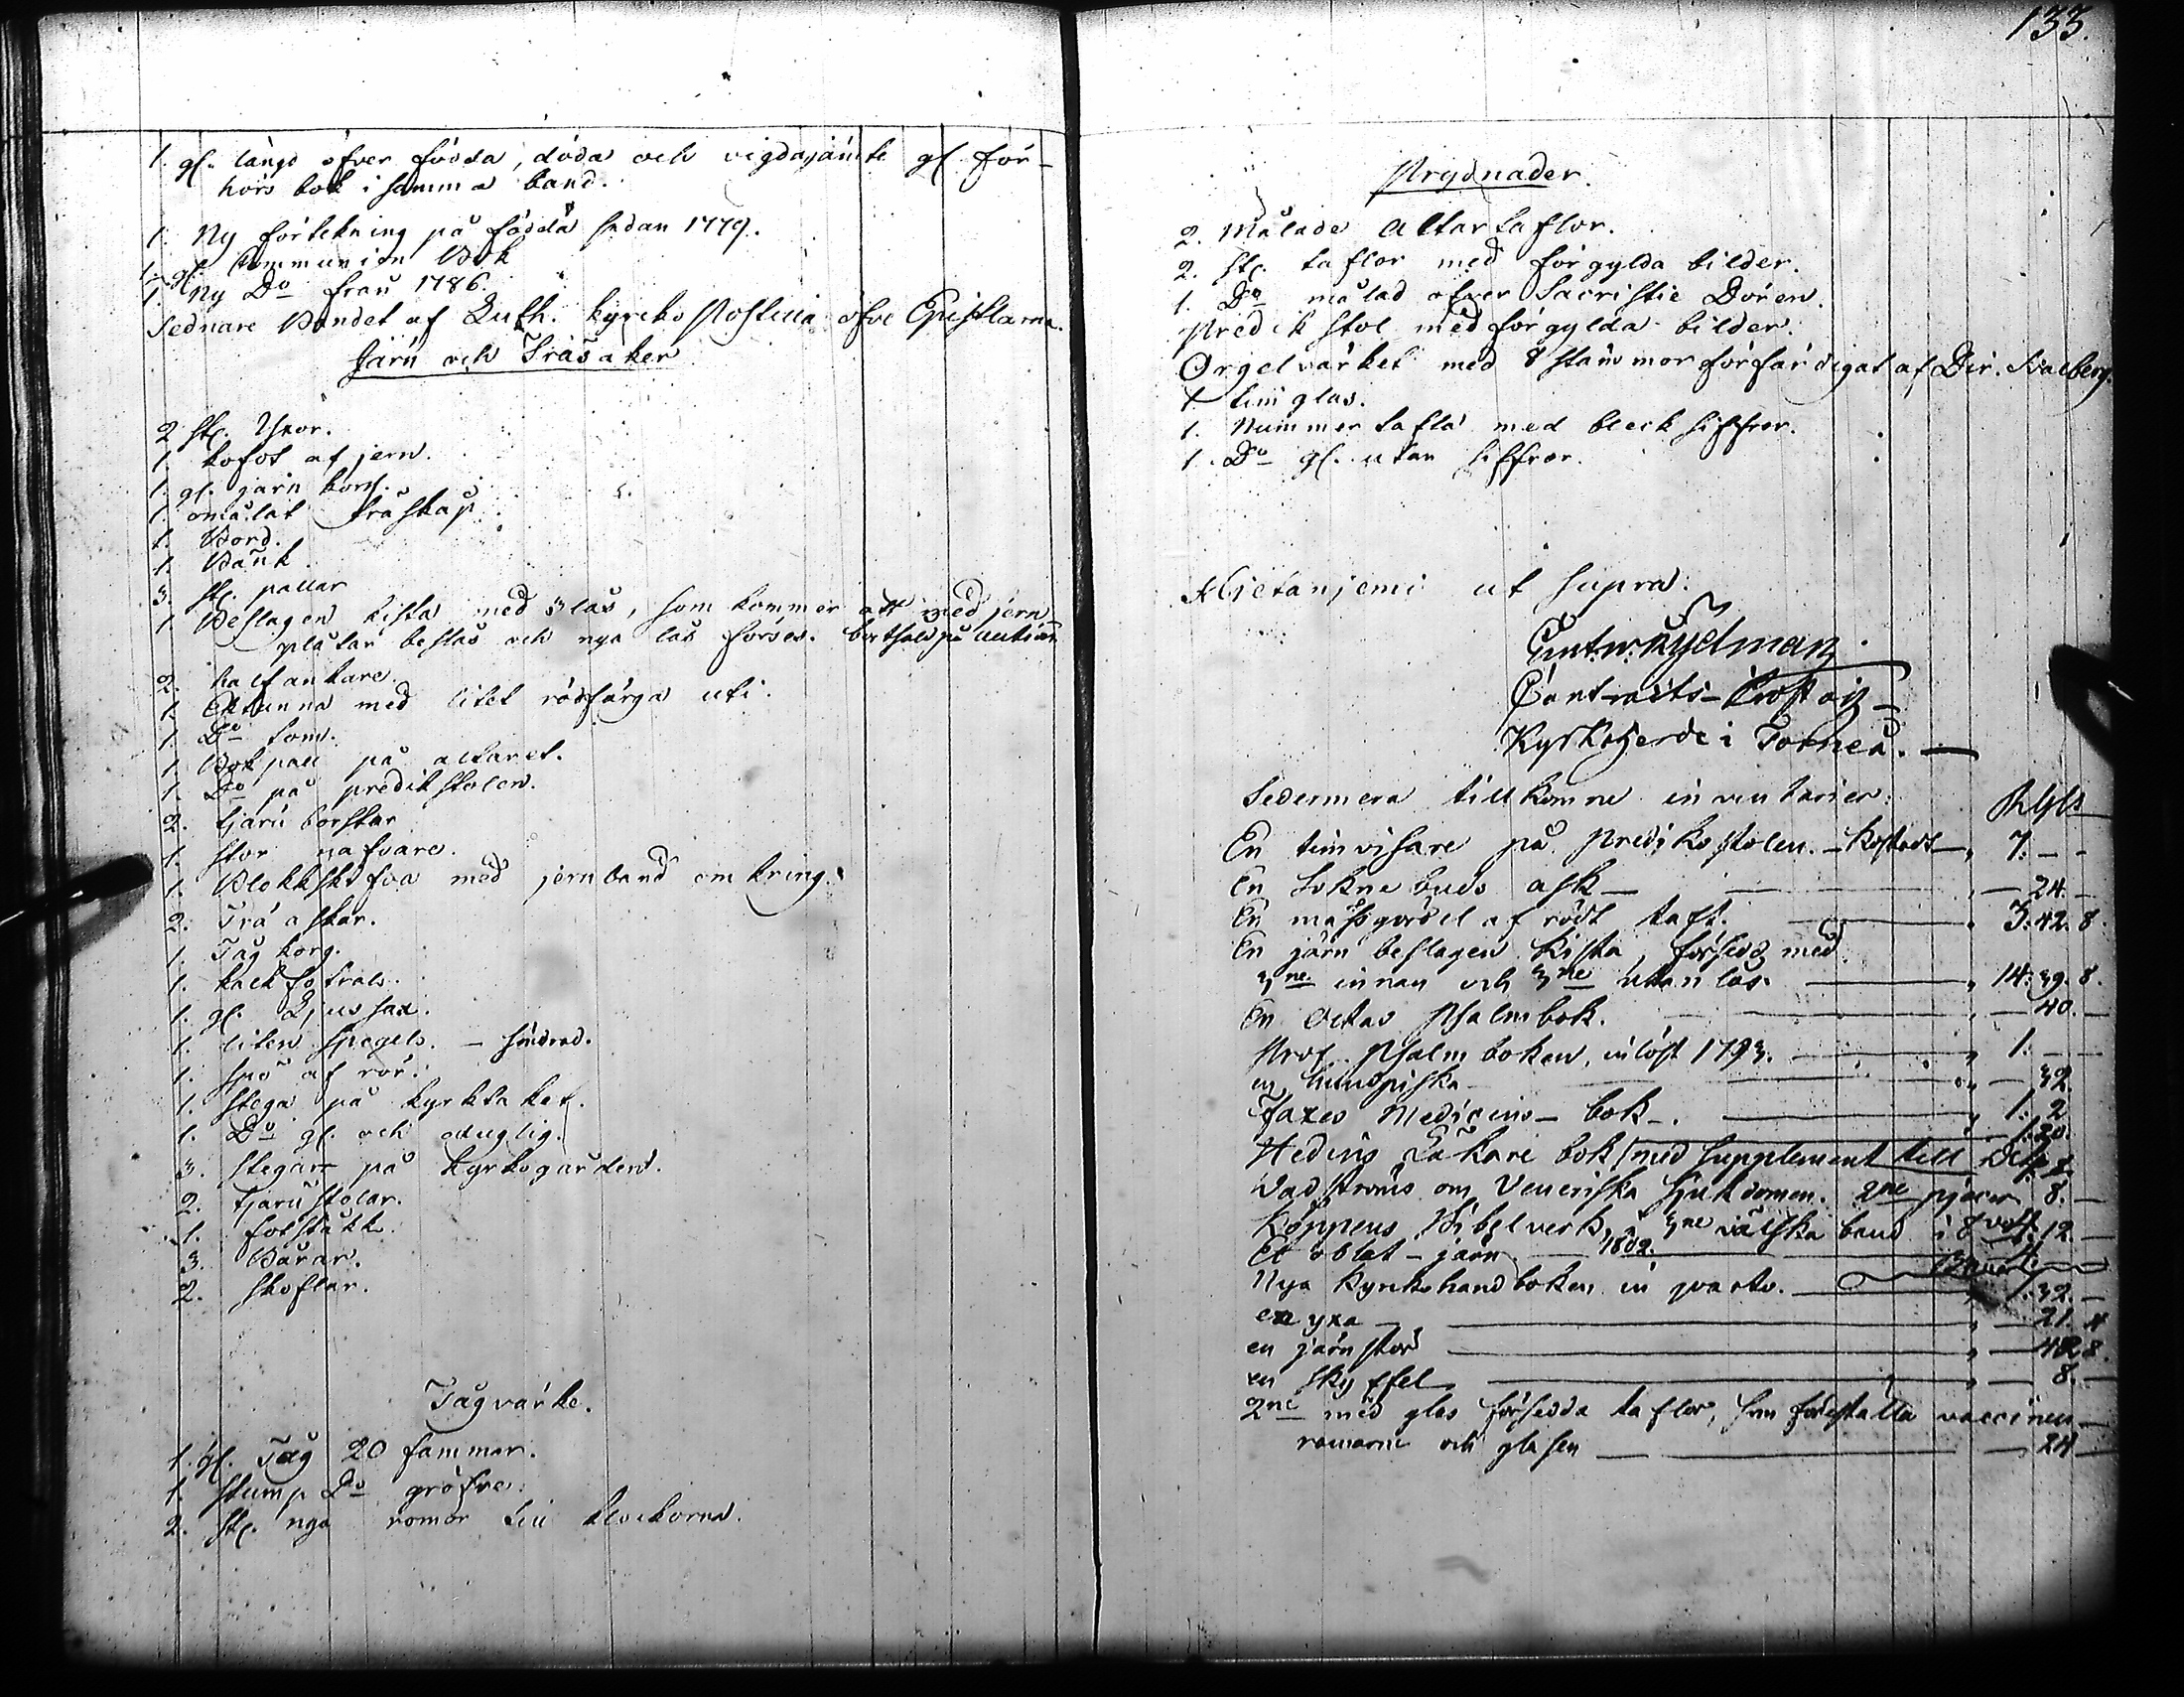 1. gl. längd öfver födda, döda och vigda, jämte gl. för-
hörs bok i samma band.
1. Ny förtekning på födda sedan 1779.
1. gl. Communion Bok
1. Ny Do från 1786.
Sednare Bandet af Luth. kyrko Postilla öfve Epistlarna.
Järn och Träsaker
2 st. Yxor.
1. kofot af jern.
1. gl. järn bors.
1. omålat träskåp.
1. Bord.
1. Bänk.
3. st. pallar
1. Beslagen kista med 3 lås, som kommer att med jern
plåtar beslås och nya lås förses. bortsåld på Auction
2. halfankare.
1. Ektunna med litet rödfärga uti.
1. Do tom.
1. Bokpall på altaret.
1. Do på predikstolen.
2. tjäru borstar
1. stor nafvare.
1. Blokkskifva med jernband omkring.
2. Trä askar.
1. Tåg korg.
1. kalk fotral.
1. gl. Ljussax.
1. liten spegel. - söndrad.
1. spö af rör.
1. stega på kyrktaket.
1. Do gl. och oduglig.
3. stegar på kyrkogården.
2. tjäru stolar.
1. fotstäkk.
3. Bårar.
2. skoflar.
Tågvärke.
1. gl. Tåg 20 famnar.
1. stump Do gröfre.
2. st. nya romor till klockorna.
133.
Prydnader.
2. Målade Altartaflor.
2. st. taflor med förgylda bilder.
1. Do målad öfver Sacristie Dören.
Predikstol med förgylda bilder.
Orgelvärket med 8 stämmor förfärdigat af Dir. Svalberg.
1 timglas.
1. Nummer tafla med bleck siffror.
1. Do gl. utan siffror.
Hietaniemi ut supra.
Nydman
Contracts-Prost och
Kyrkoherde i Torneå.
Sedermera tillkomne inventarier: Rgs
En timvisare på Predikostolen. - kostade 7. - -
En Soknebuds ask - 24. -
En mässgördel af rödt taft. 3. 42. 8.
En järn beslagen kista, försedd med
3ne innan och 3ne utan lås. 14. 39. 8.
En Octav Psalmbok. 40. -
Prof. Psalm boken, inlöst 1793. 1. - -
en hundpiska - 32
Faxes Medicins-bok -. 1. 2
Hedins Läkare bok med Supplement till Dito 1. 20.
Wadströms om Veneriska sjukdomen. 2ne pjecer 8. -
Köppens Bibelverk, i 3ne välska band i 8 vol. 12. -
Et oblat-järn 1802.
Nya Kyrkohandboken in quarto. 1. 32. -
en yxa - 21. 4
en järnstör 42 8.
en skyffel 8. -
2ne med glas försedda taflor, som föreställa vaccinen -
ramarne och glasen 24 -